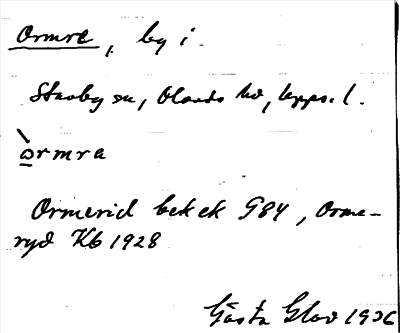 Ormre, by i
Stavby sn, Olands hd, Upps. l.
òrmra
Ormerid bek ek G84, Orme-
ryd Kb 1928
Gösta Glad 1936